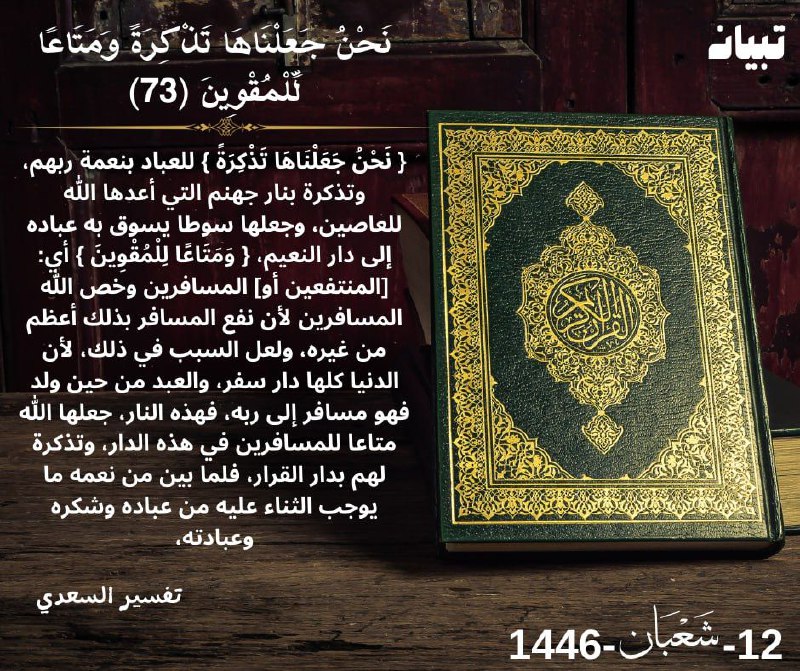 تبيان
نَحْنُ جَعَلْنَاهَا تَذْكِرَةً وَمَتَاعًا
لِّلْمُقْوِينَ (73)
{ نَحْنُ جَعَلْنَاهَا تَذْكِرَةً } للعباد بنعمة ربهم،
وتذكرة بنار جهنم التي أعدها الله
للعاصين، وجعلها سوطا يسوق به عباده
إلى دار النعيم، { وَمَتَاعًا لِلْمُقْوِينَ } أي:
[المنتفعين أو] المسافرين وخص الله
المسافرين لأن نفع المسافر بذلك أعظم
من غيره، ولعل السبب في ذلك، لأن
الدنيا كلها دار سفر، والعبد من حين ولد
فهو مسافر إلى ربه، فهذه النار، جعلها الله
متاعا للمسافرين في هذه الدار، وتذكرة
لهم بدار القرار، فلما بين من نعمه ما
يوجب الثناء عليه من عباده وشكره
وعبادته،
تفسير السعدي
القرآن الكريم
12-شَعْبَان-1446